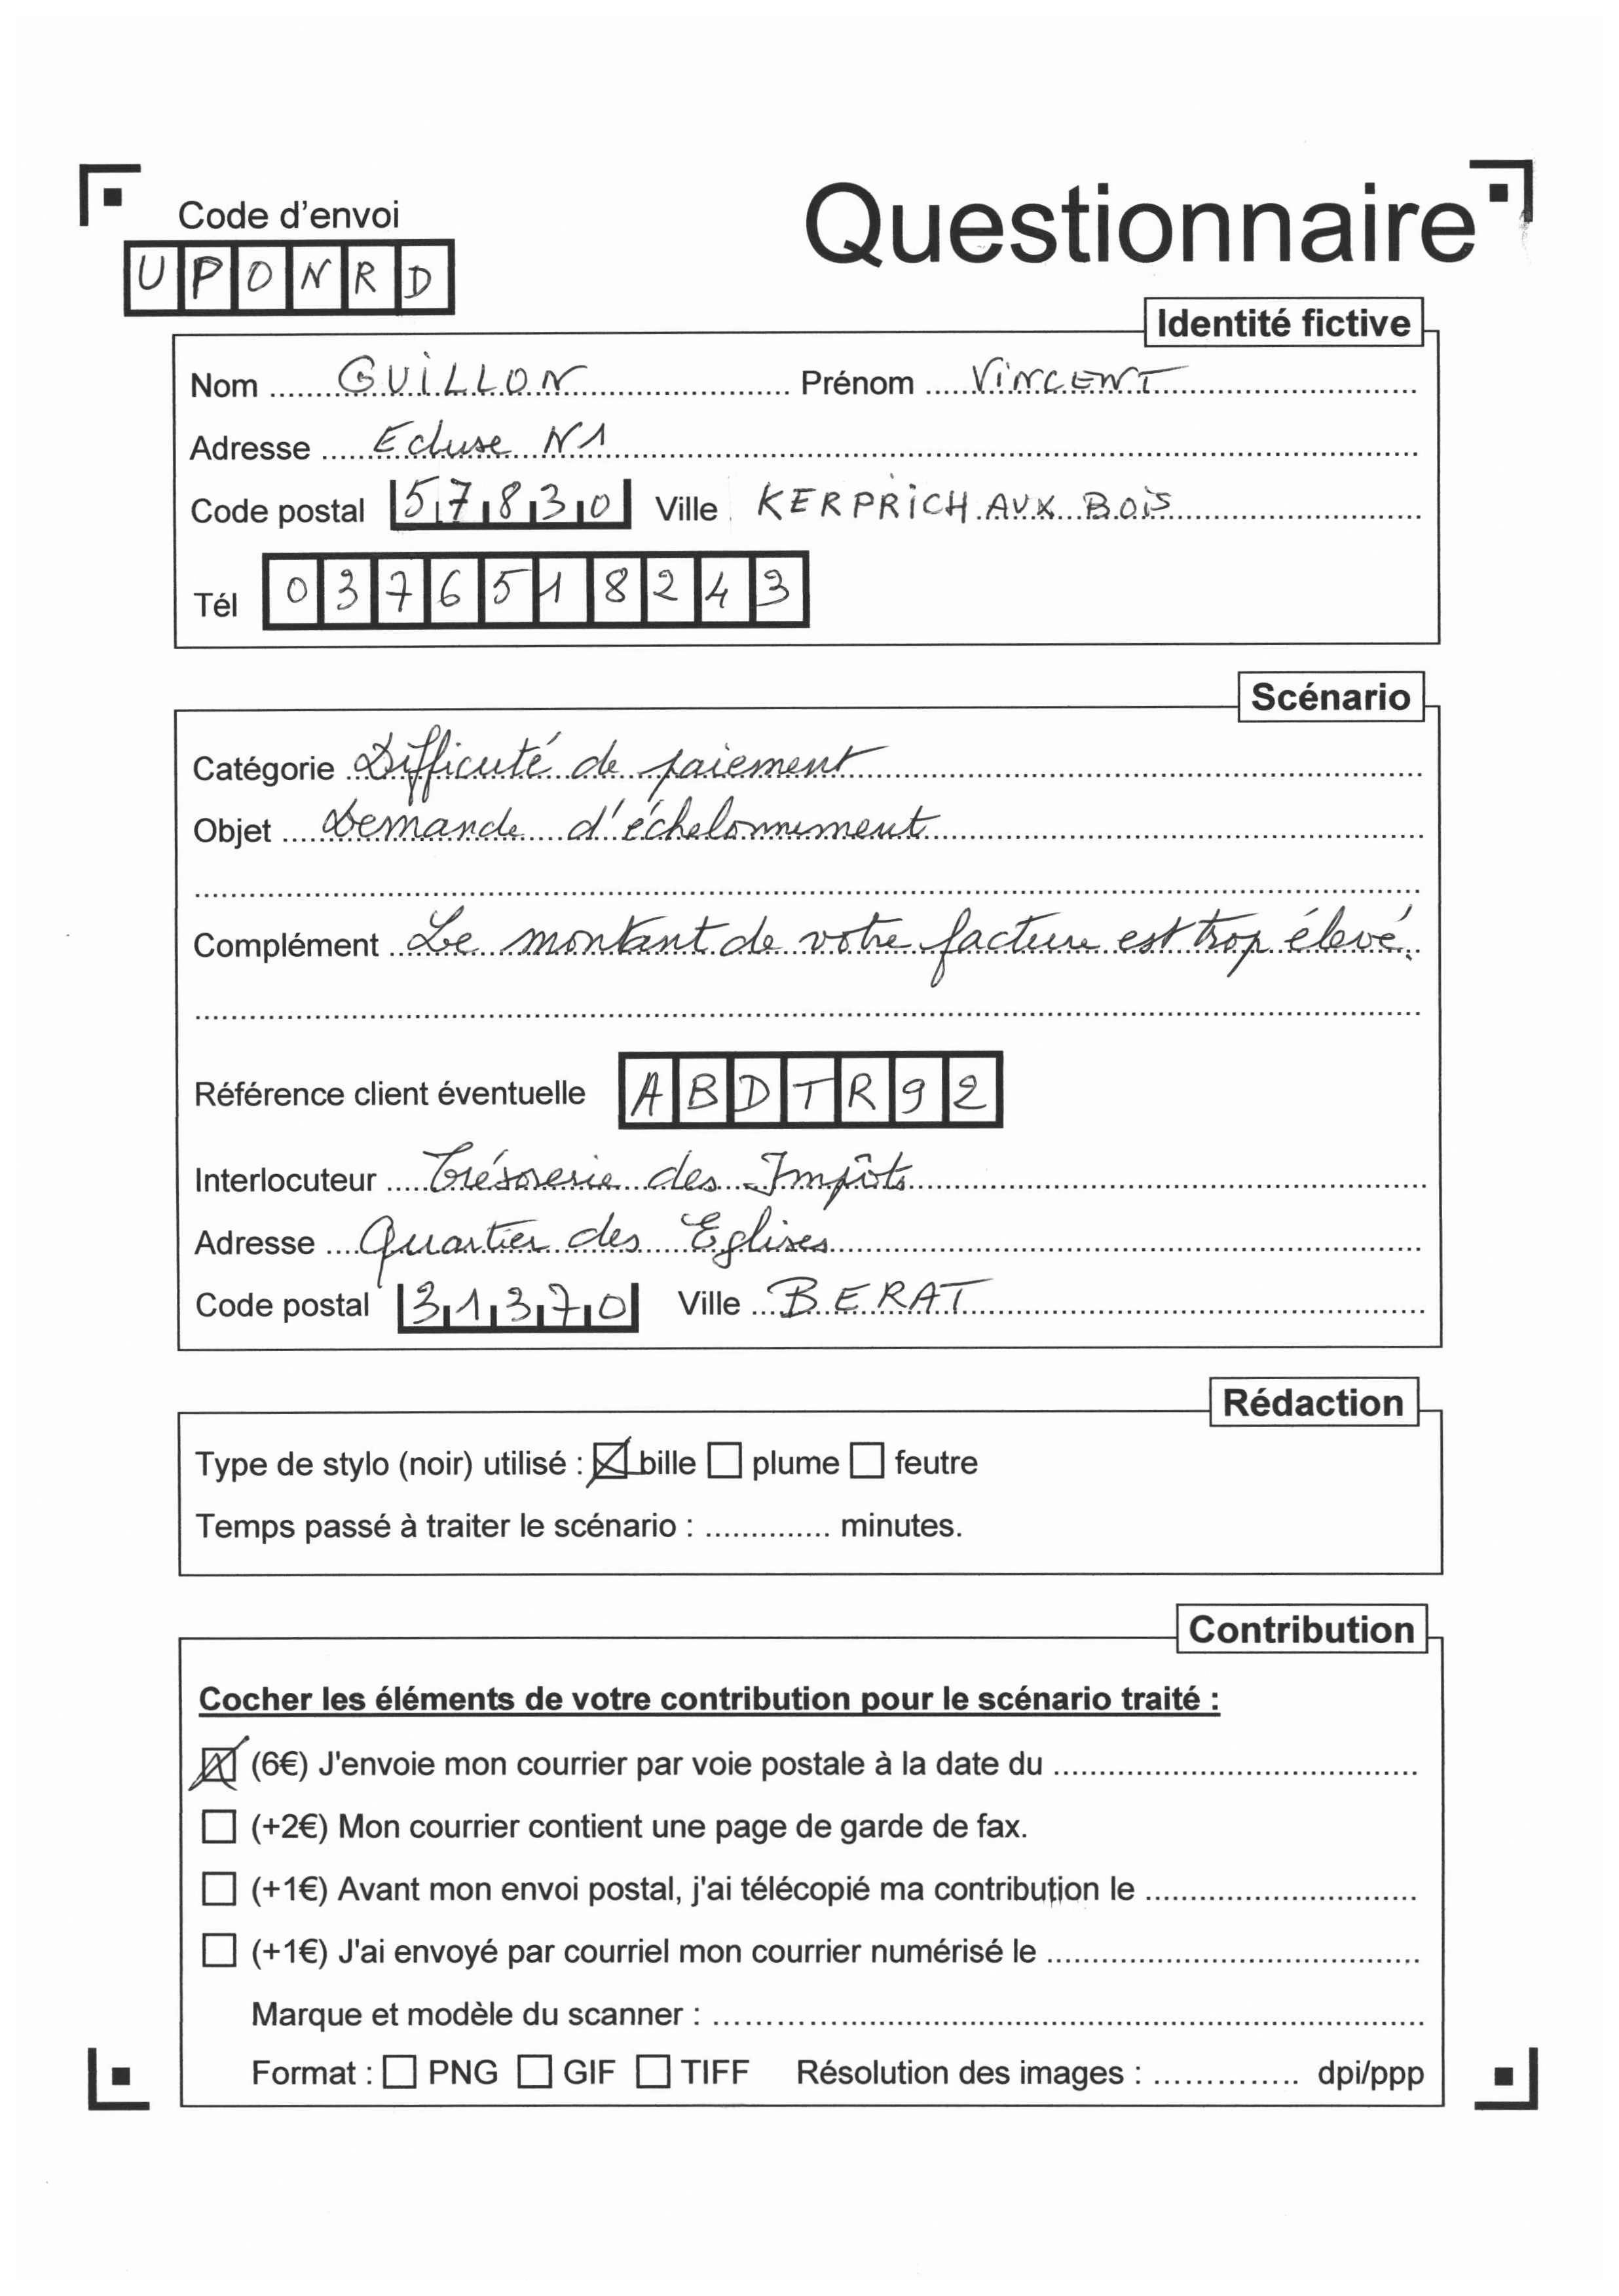 Code d'envoi
Questionnaire
UPONRD
Identité fictive
Nom GUILLON Prénom VINCENT
Adresse Ecluse N1
Code postal 57830 Ville KERPRICH AUX BOIS
Tél 0376518243
Scénario
Catégorie Difficuté de paiement
Objet Demande d'échelonnement
Complément Le montant de votre facture est trop élevé.
Référence client éventuelle ABDTR92
Interlocuteur Trésorerie des Impôts
Adresse Quartier des Eglises
Code postal 31370 Ville BERAT
Rédaction
Type de stylo (noir) utilisé : bille plume feutre
Temps passé à traiter le scénario : .............. minutes.
Contribution
Cocher les éléments de votre contribution pour le scénario traité :
(6€) J'envoie mon courrier par voie postale à la date du
(+2€) Mon courrier contient une page de garde de fax.
(+1€) Avant mon envoi postal, j'ai télécopié ma contribution le
(+1€) J'ai envoyé par courriel mon courrier numérisé le
Marque et modèle du scanner :
Format : PNG GIF TIFF Résolution des images : .............. dpi/ppp